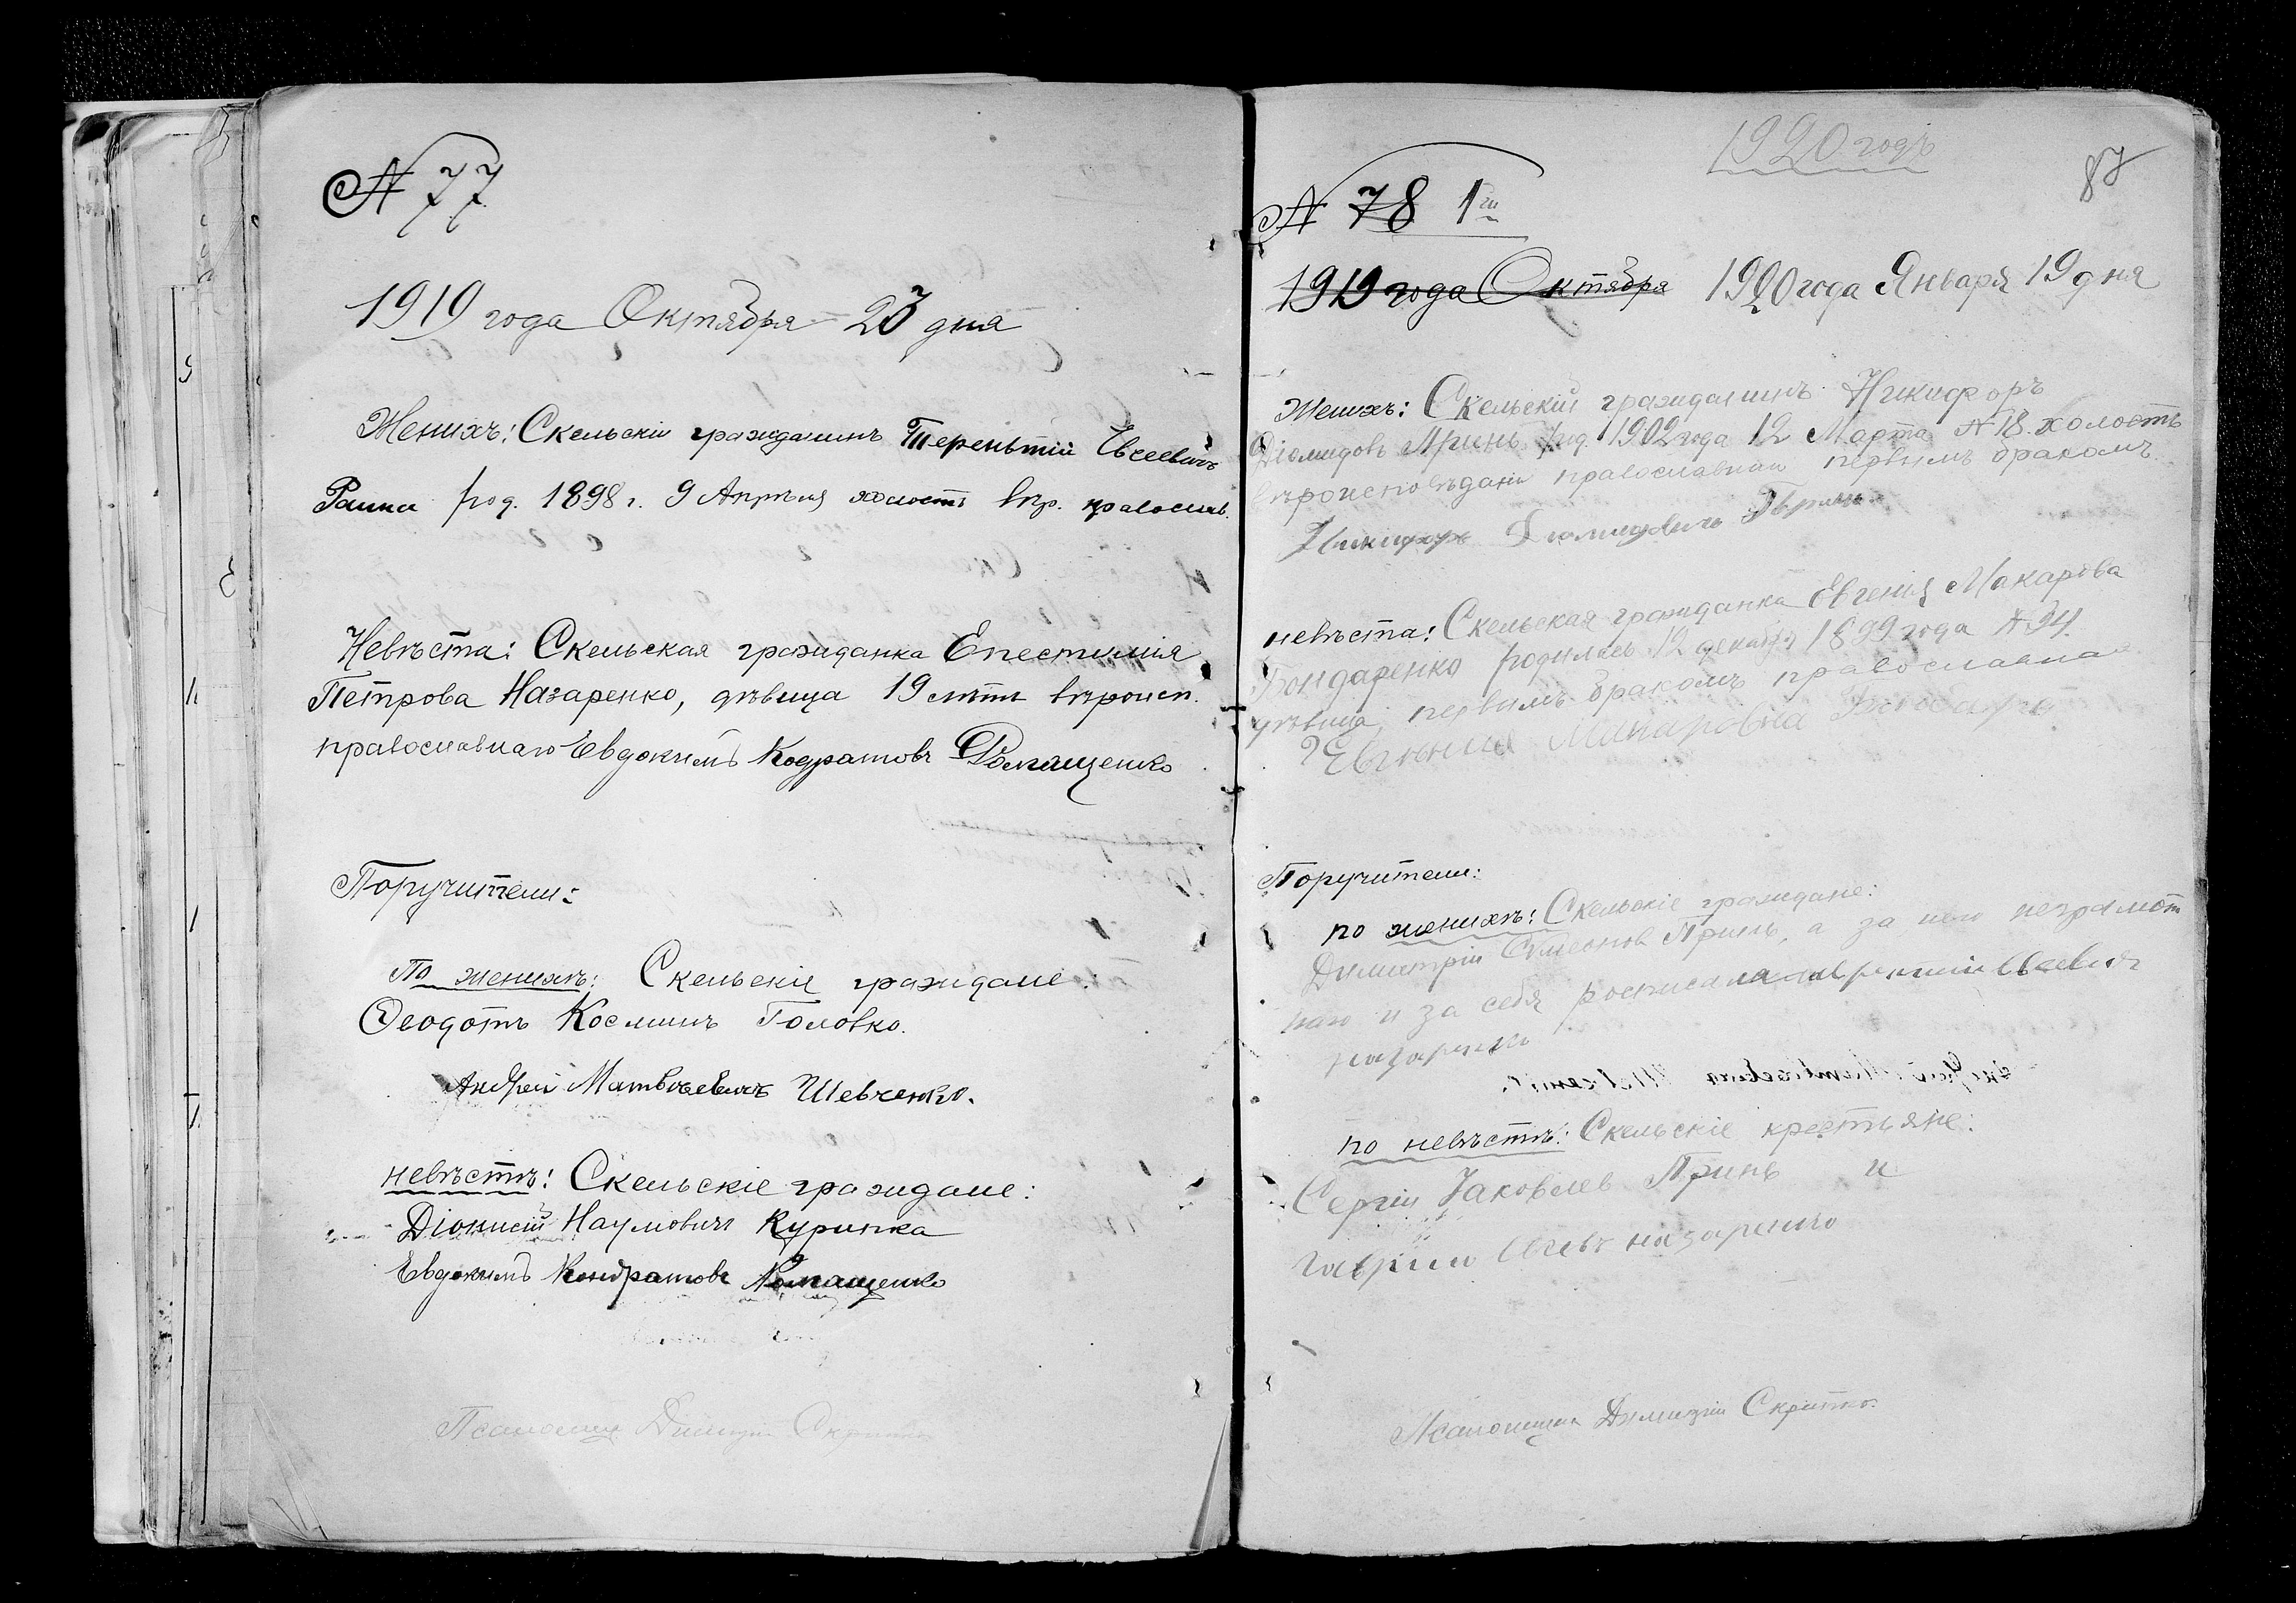 № 77
1919 года Октября 23 дня
Женихъ: Скельскій гражданинъ Терентій Евсеевичъ
род. 1898 г. 9 Апрѣля холостъ вѣр. православ.
Невѣста: Скельская гражданка Епестимія
Петрова Назаренко, дѣвица 19 лѣтъ вѣроисп.
православнаго Евдокимъ Кодратовъ Ромащенко
Поручители:
По женихѣ: Скельскіе граждане:
Ѳеодотъ Косминъ Головко.
Андрей Матвѣевичъ Шевченко.
невѣстѣ: Скельскіе граждане:
Діонисій Наумовичъ Курипка
Евдокимъ Кондратовъ Ромащенко
Псаломщик Димитрій
1920 годъ
87
№ 78 1й
1919 года Октября 1920 года Января 19 дня
Женихъ: Скельскій гражданинъ Никифоръ
Діомидовъ род. 1902 года 12 Марта № 18. холостъ
вѣроисповѣданія православнаго первымъ бракомъ.
Никифоръ Діомидовичъ
невѣста: Скельская гражданка Евгенія Макарова
Бондаренко родилась 12 декабря 1899 года № 94.
дѣвица, первымъ бракомъ православная
Евгения Макаровна
Поручители:
по женихѣ: Скельскіе граждане:
Димитрій Симеонов а за него неграмот
наго и за себя росписался
назаренко
по невѣстѣ: Скельскіе крестьяне:
Сергій Іаковлев и
назаренко
Псаломщик Димитрій